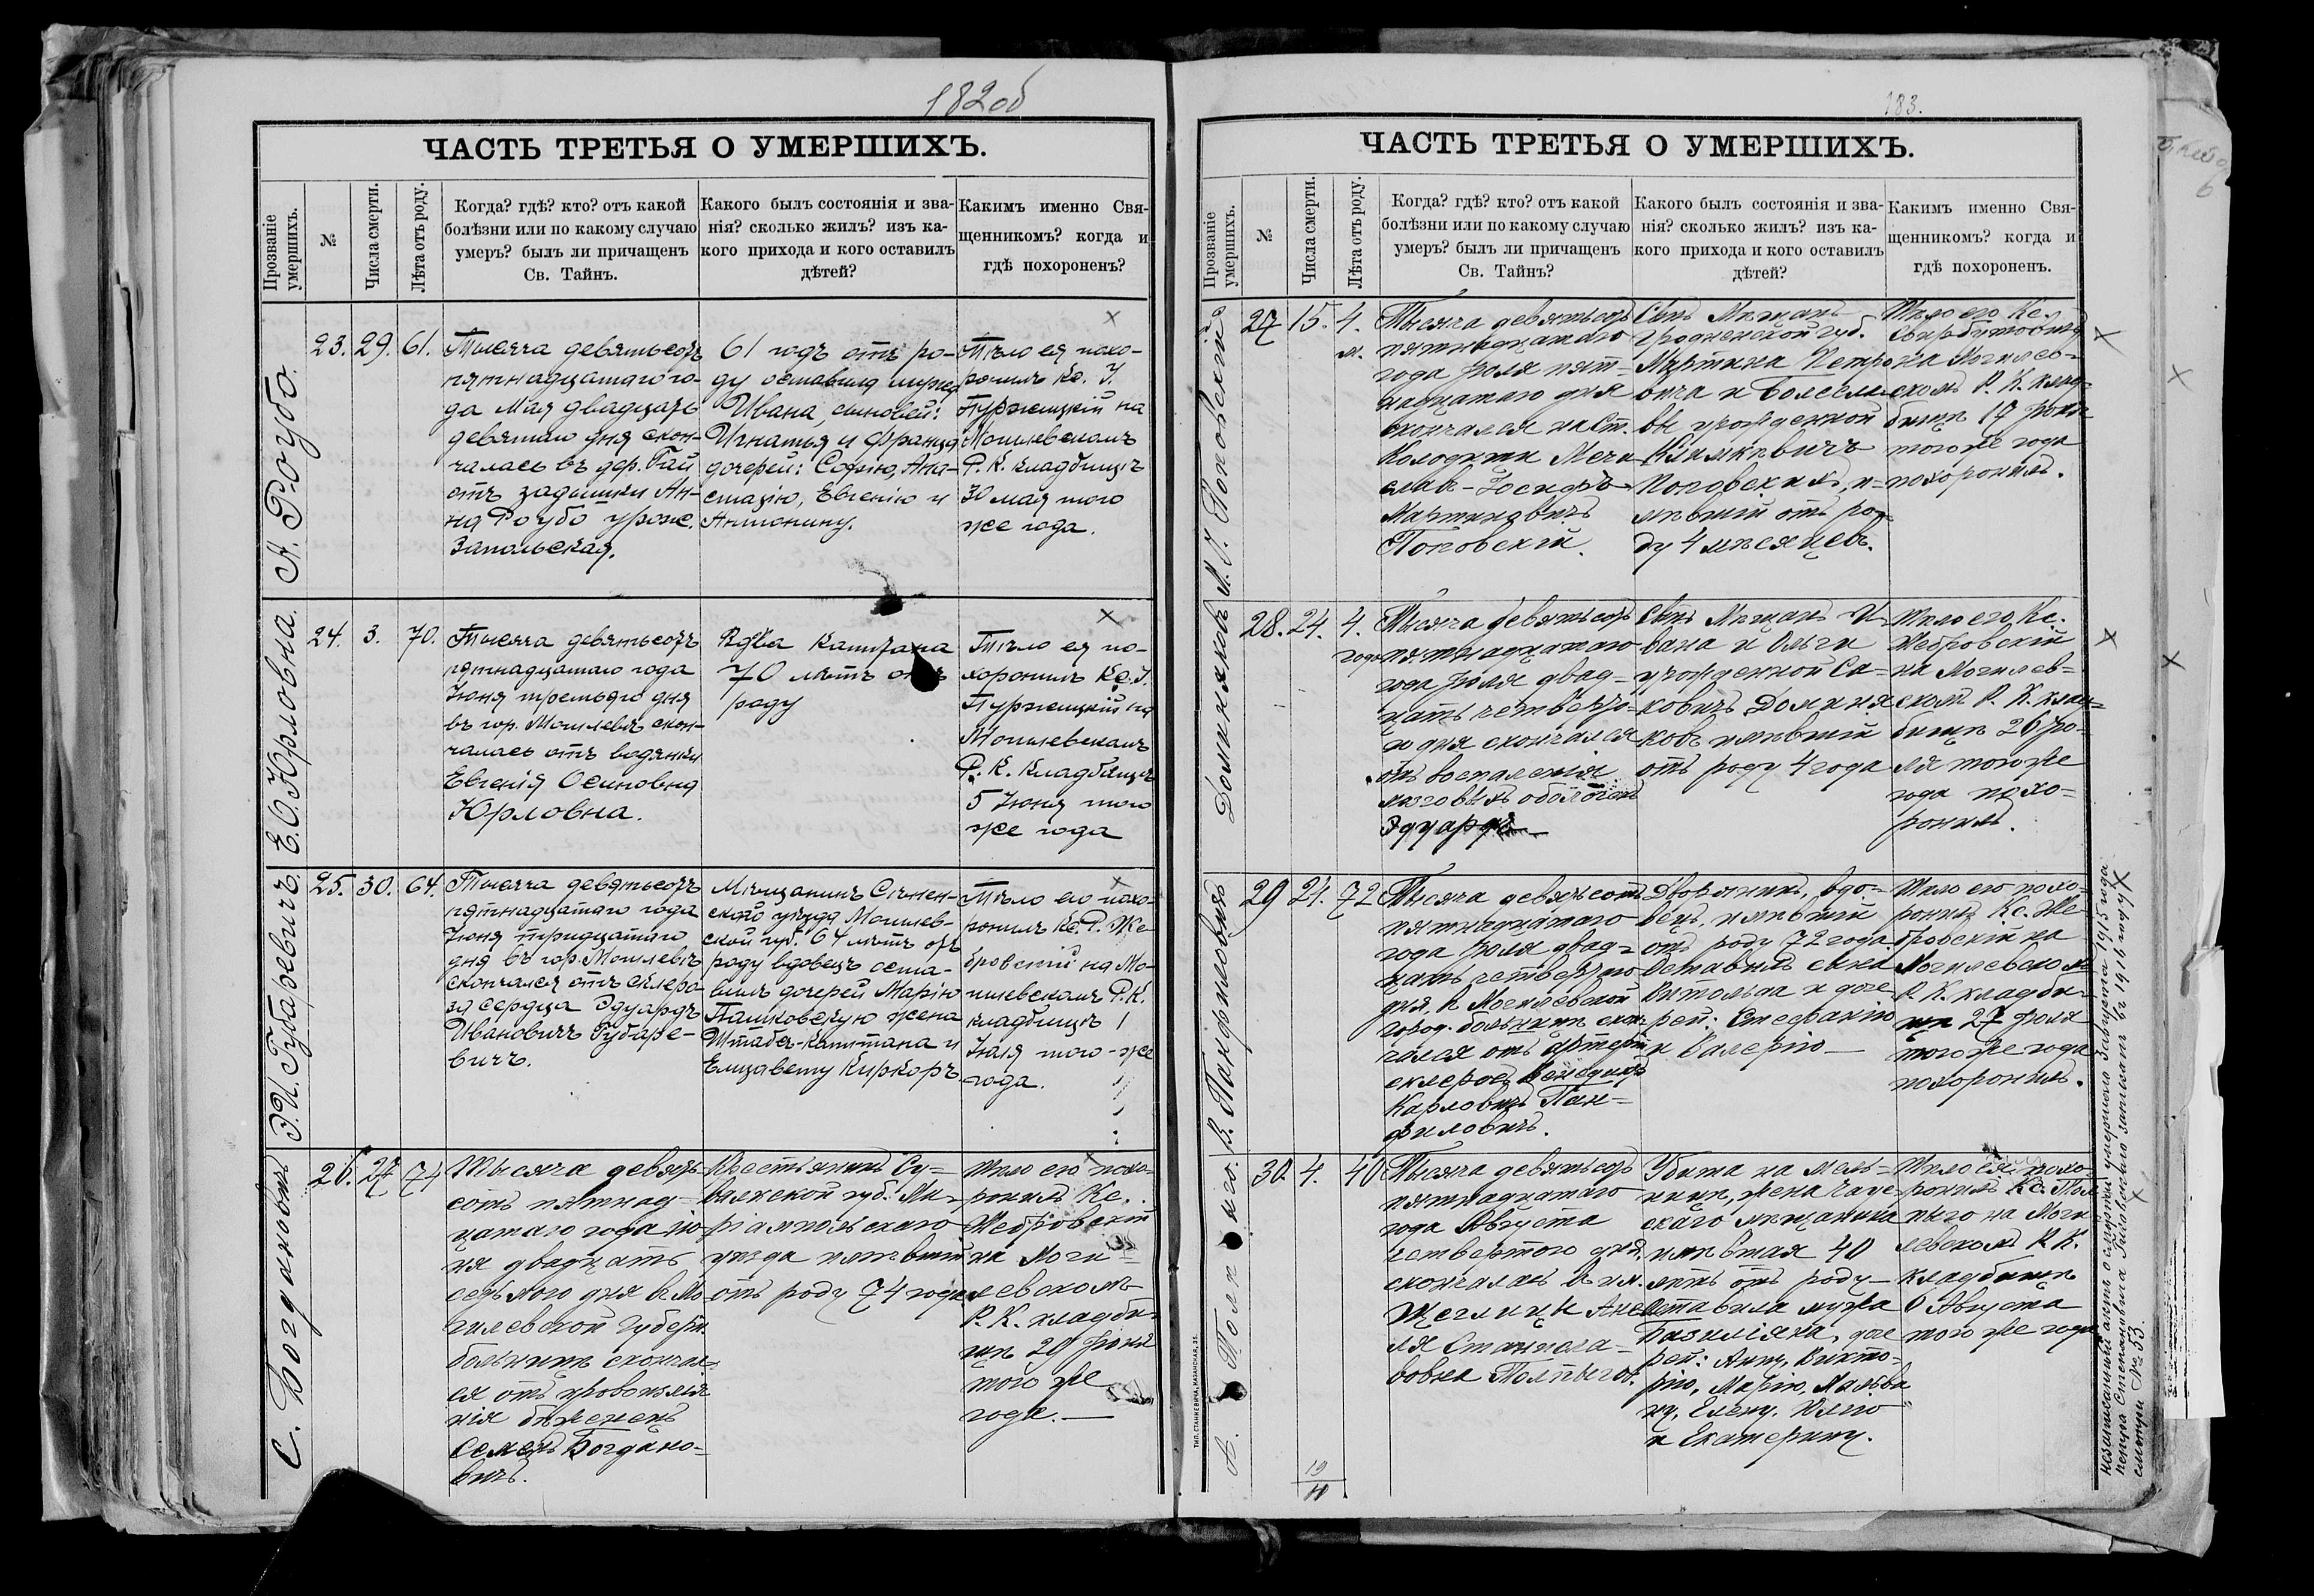 182об
ЧАСТЬ ТРЕТЬЯ О УМЕРШИХЪ.
Прозваніе умершихъ.
№
Числа смерти.
Лѣта отъ роду.
Когда? гдѣ? кто? отъ какой
болѣзни или по какому случаю
умеръ? былъ ли причащенъ
Св. Тайнъ.
Какого былъ состоянія и зва-
нія? сколько жилъ? изъ ка-
кого прихода и кого оставилъ
дѣтей?
Какимъ именно Свя-
щенникомъ? когда и
гдѣ похороненъ?
А. Роубо.
23.
29.
61.
Тысяча девятьсотъ
пятнадцатаго го-
да Мая двадцать
девятаго дня скон-
чалась въ дер. Гаи
отъ задышки Ан-
на Роубо урожд.
Запольская.
61 годъ отъ ро-
ду оставила мужа
Ивана, сыновей:
Игнатья и Франца
дочерей: Софію, Ана-
стацію, Евгенію и
Антонину.
Тѣло ея похо-
ронилъ Кс. I.
Пуржицкій на
Могилевскомъ
Р. К. кладбищѣ
30 мая того
же года.
Е. О. Юрловна.
24.
3.
70.
Тысяча девятьсотъ
пятнадцатаго года
Іюня третьяго дня
въ гор. Могилевѣ скон-
чалась отъ водянки
Евгенія Осиповна
Юрловна.
Вдова Капитана
70 лѣтъ отъ
роду
Тѣло ея по-
хоронилъ Кс. I.
Пуржицкій на
Могилевскомъ
Р. К. Кладбищѣ
5 Іюня того
же года
Э. И. Губаревичъ.
25.
30.
64.
Тысяча девятьсотъ
пятнадцатаго года
Іюня тридцатаго
дня въ гор. Могилевѣ
скончался отъ склеро-
за сердца Эдуардъ
Ивановичъ Губаре-
вичъ.
Мѣщанинъ Сѣннен-
скаго уѣзда Могилев-
ской губ. 64 лѣтъ отъ
роду вдовецъ оста-
вилъ дочерей Марію
Пашковскую жена
Штабсъ-капитана и
Елизавету Киркоръ
Тѣло его похо-
ронилъ Кс. Р. Же-
бровскій на Мо-
гилевскомъ Р. К.
кладбищѣ 1
Іюля того-же
года.
С. Богдановичъ
26.
27
74
Тысяча девять-
сотъ пятнад-
цатаго года Iю-
ня двадцать
седьмого дня в Мо-
гилевской Губерн.
больницѣ скончал-
ся отъ кровоизлія
нія бѣженецъ
Семенъ Богдано-
вичъ.
Крестьянинъ Су-
валкской губ. Ма-
ріампольскаго
уѣзда имѣвшій
отъ роду 74 года
Тѣло его похо-
ронилъ Кс.
Жебровскій
на Моги-
левскомъ
Р. К. кладби-
щѣ 29 Iюня
того же
года.
183.
ЧАСТЬ ТРЕТЬЯ О УМЕРШИХЪ.
Прозваніе умершихъ.
№
Числа смерти.
Лѣта отъ роду.
Когда? гдѣ? кто? отъ какой
болѣзни или по какому случаю
умеръ? былъ ли причащенъ
Св. Тайнъ?
Какого былъ состоянія и зва-
нія? сколько жилъ? изъ ка-
кого прихода и кого оставилъ
дѣтей?
Какимъ именно Свя-
щенникомъ? когда и
гдѣ похороненъ.
М. I. Поповскій
27
15.
4.
м.
Тысяча девятьсотъ
пятнадцатаго
года Iюля пят-
надцатаго дня
скончался на ст.
Колодкти Мечи
славъ-Iосифъ
Мартиновичъ
Поповскій.
Сынъ Мѣщанъ
Гродненской губ.
Мартина Петро
вича и Болесла-
вы урожденной
Климкѣвичъ
Поповскихъ, и-
мѣвшій отъ ро-
ду 4 мѣсяцевъ.
Тѣло его Кс.
на Могилев-
скомъ Р. К. клад-
бищѣ 17 Iюля
того же года
похоронилъ.
Доминяковъ
28.
24.
4.
года
Тысяча девятьсотъ
пятнадцатаго
года Iюля двад-
цать четверта-
го дня скончался
отъ воспаленія
мозговыхъ оболочекъ
Эдуардъ
Сынъ Мѣщанъ И-
вана и Ольги
урожденной Са-
ковичъ Доминя
ковъ имѣвшій
отъ роду 4 года
Тѣло его Кс.
Жебровскій
на Могилев-
скомъ Р. К. клад-
бищѣ 26 Iю-
ля того же
года похо-
ронилъ.
В. Панфиловичъ
29
24.
72
Тысяча девятьсотъ
пятнадцатаго
года Iюля двад-
цать четвертаго
дня, в Могилевской
город. больницѣ скон-
чался отъ артеріо
склероза Венедиктъ
Карловичъ Пан-
филовичъ.
Дворянинъ, вдо-
вецъ, имѣвшій
отъ роду 72 года
Оставилъ сына
Витольда и доче
рей: Стефанію
и Валерію
Тѣло его похо-
ронилъ Кс. Же-
бровскій на
Могилевскомъ
Р. К. кладби-
щѣ 27 Iюля
того же года
похоронилъ.
30.
4.
40
Тысяча девятьсотъ
пятнадцатаго
года Августа
четвертого дня,
скончалась в им.
Щеглицѣ Ане
ля Станисла-
вовна
Убита на мель-
ницѣ, жена Чаус-
скаго мѣщанина
имѣвшая 40
лѣтъ отъ роду
Оставила мужа
Базиліяна, доче
рей: Анну, Викто-
рію, Марію, Мальви
ну, Елену, Юлію
и Екатерину.
Тѣло ея похо-
ронилъ Кс.
на Моги
левскомъ Р. К.
кладбищѣ
6 Августа
того же года
19
11
незаписанный актъ о смерти умершаго 3 августа 1915 года
Степановича записанъ въ 1916 году
смотри № 53.
ТИП. СТАНКЕВИЧА, КАЗАНСКАЯ, 33.